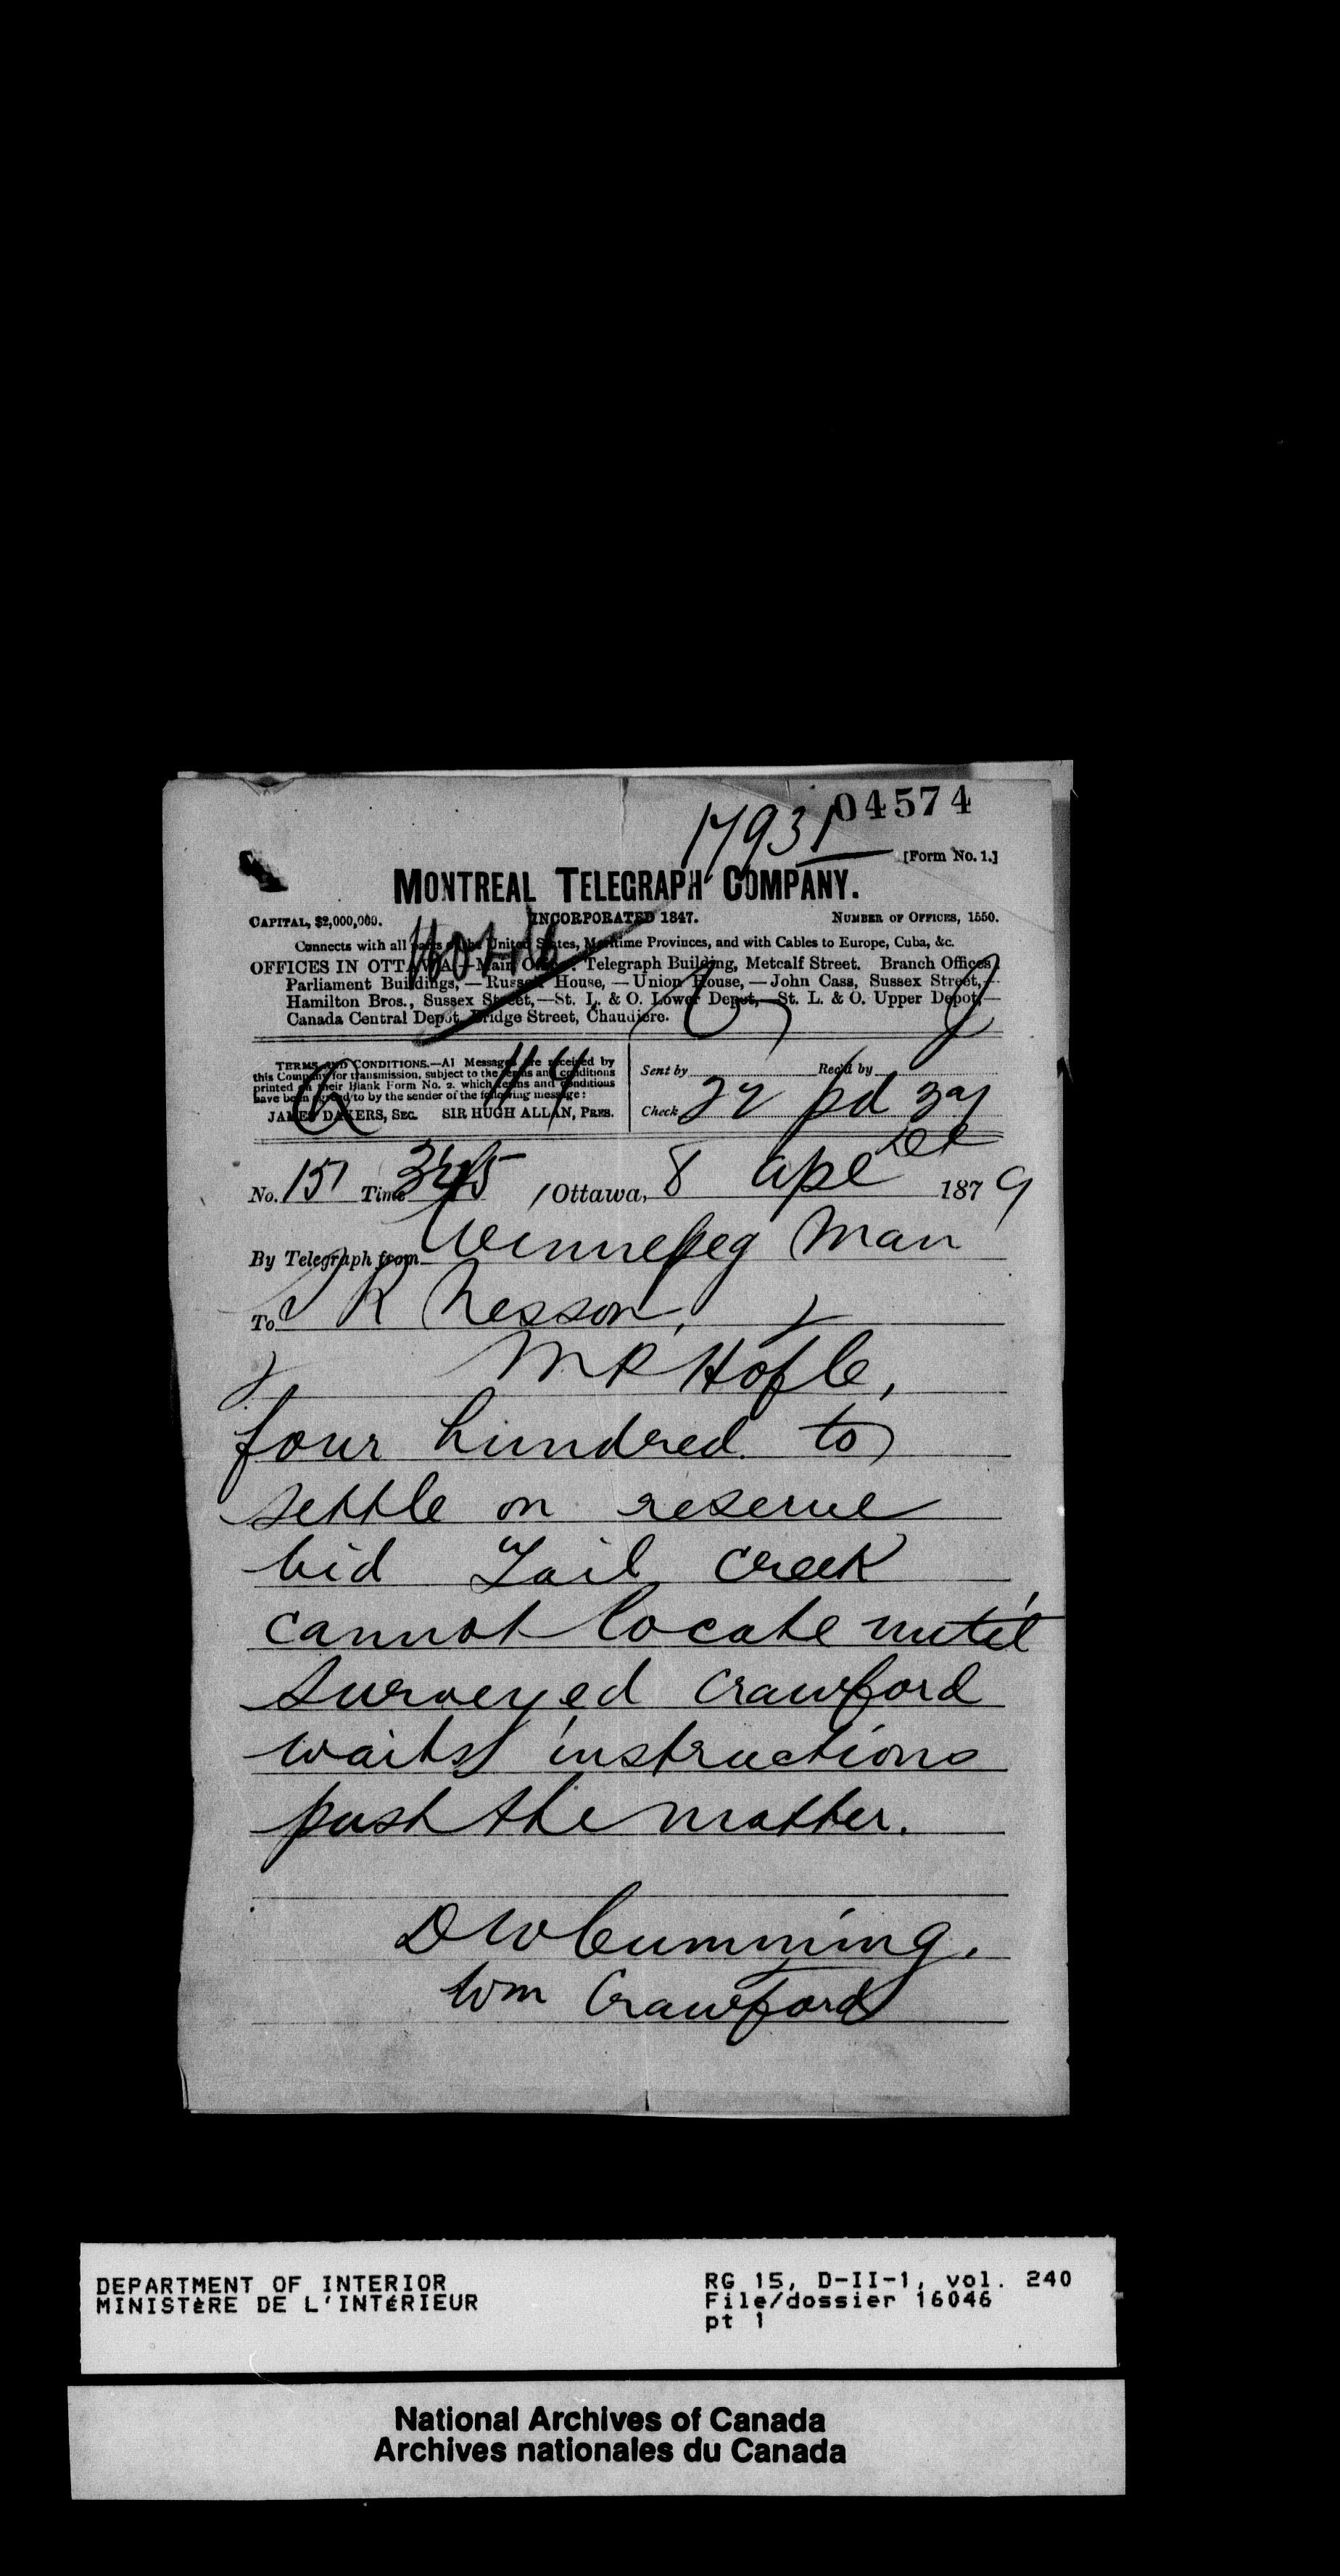 04574
17931
[Form No. 1.]
MONTREAL TELEGRAPH COMPANY.
CAPITAL, $2,000,000. INCORPORATED 1847. NUMBER OF OFFICES, 1550.
Connects with all parts of the United States, Maritime Provinces, and with Cables to Europe, Cuba, &c.
OFFICES IN OTTAWA—Main Office: Telegraph Building, Metcalf Street. Branch Offices,
Parliament Buildings,—Russell House,—Union House,—John Cass, Sussex Street,—
Hamilton Bros., Sussex Street,—St. L. & O. Lower Depot,—St. L. & O. Upper Depot,—
Canada Central Depot, Bridge Street, Chaudiere.
TERMS AND CONDITIONS.—All Messages are received by
this Company for transmission, subject to the terms and conditions
printed on their Blank Form No. 2. which terms and conditions
have been agreed to by the sender of the following message:
JAMES DAKERS, SEC. SIR HUGH ALLAN, PRES.
Sent by Rec'd by
Check 22 pd
No. 151 Time 345 Ottawa, 8 Apl 1879
By Telegraph from Winnepeg Man
To R Hesson,
M P
four hundred to
settle on reserve
bid Tail Creek
cannot locate until
surveyed Crawford
waits instructions
push the matter.
D W Cumming.
Wm Crawford
DEPARTMENT OF INTERIOR
MINISTÈRE DE L'INTÉRIEUR
RG 15, D-II-1, vol. 240
File/dossier 16046
pt 1
National Archives of Canada
Archives nationales du Canada